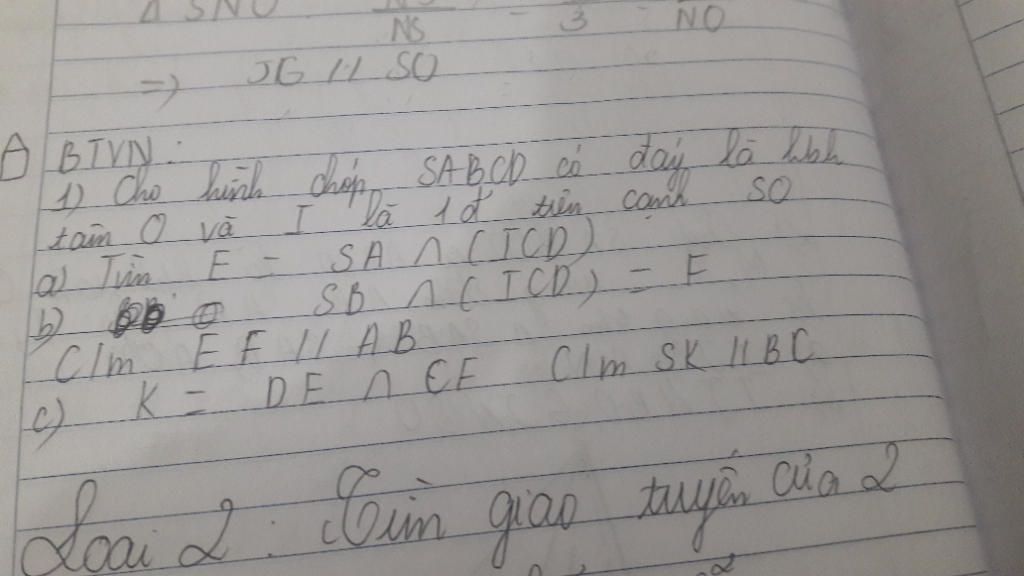 Δ SNO
NS 3 NO
=) IG // SO
BTVN:
1) Cho hình chóp SABCD có đáy là hbh
tâm O và I là 1đ trên cạnh SO
a) Tìm E = SA ∩ (ICD)
b) SB ∩ (ICD) = F
C/m EF // AB
c) K = DE ∩ CF C/m SK // BC
Loại 2: Tìm giao tuyến của 2